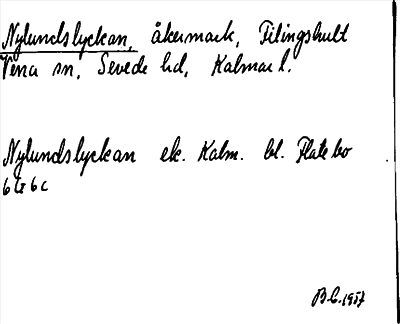 Nylundslyckan, åkermark, Filingshult
Vena sn, Sevede hd, Kalmar l.
Nylundslyckan ek. Kalm. bl. Flatebo
6 G 6 c
B.G. 1957